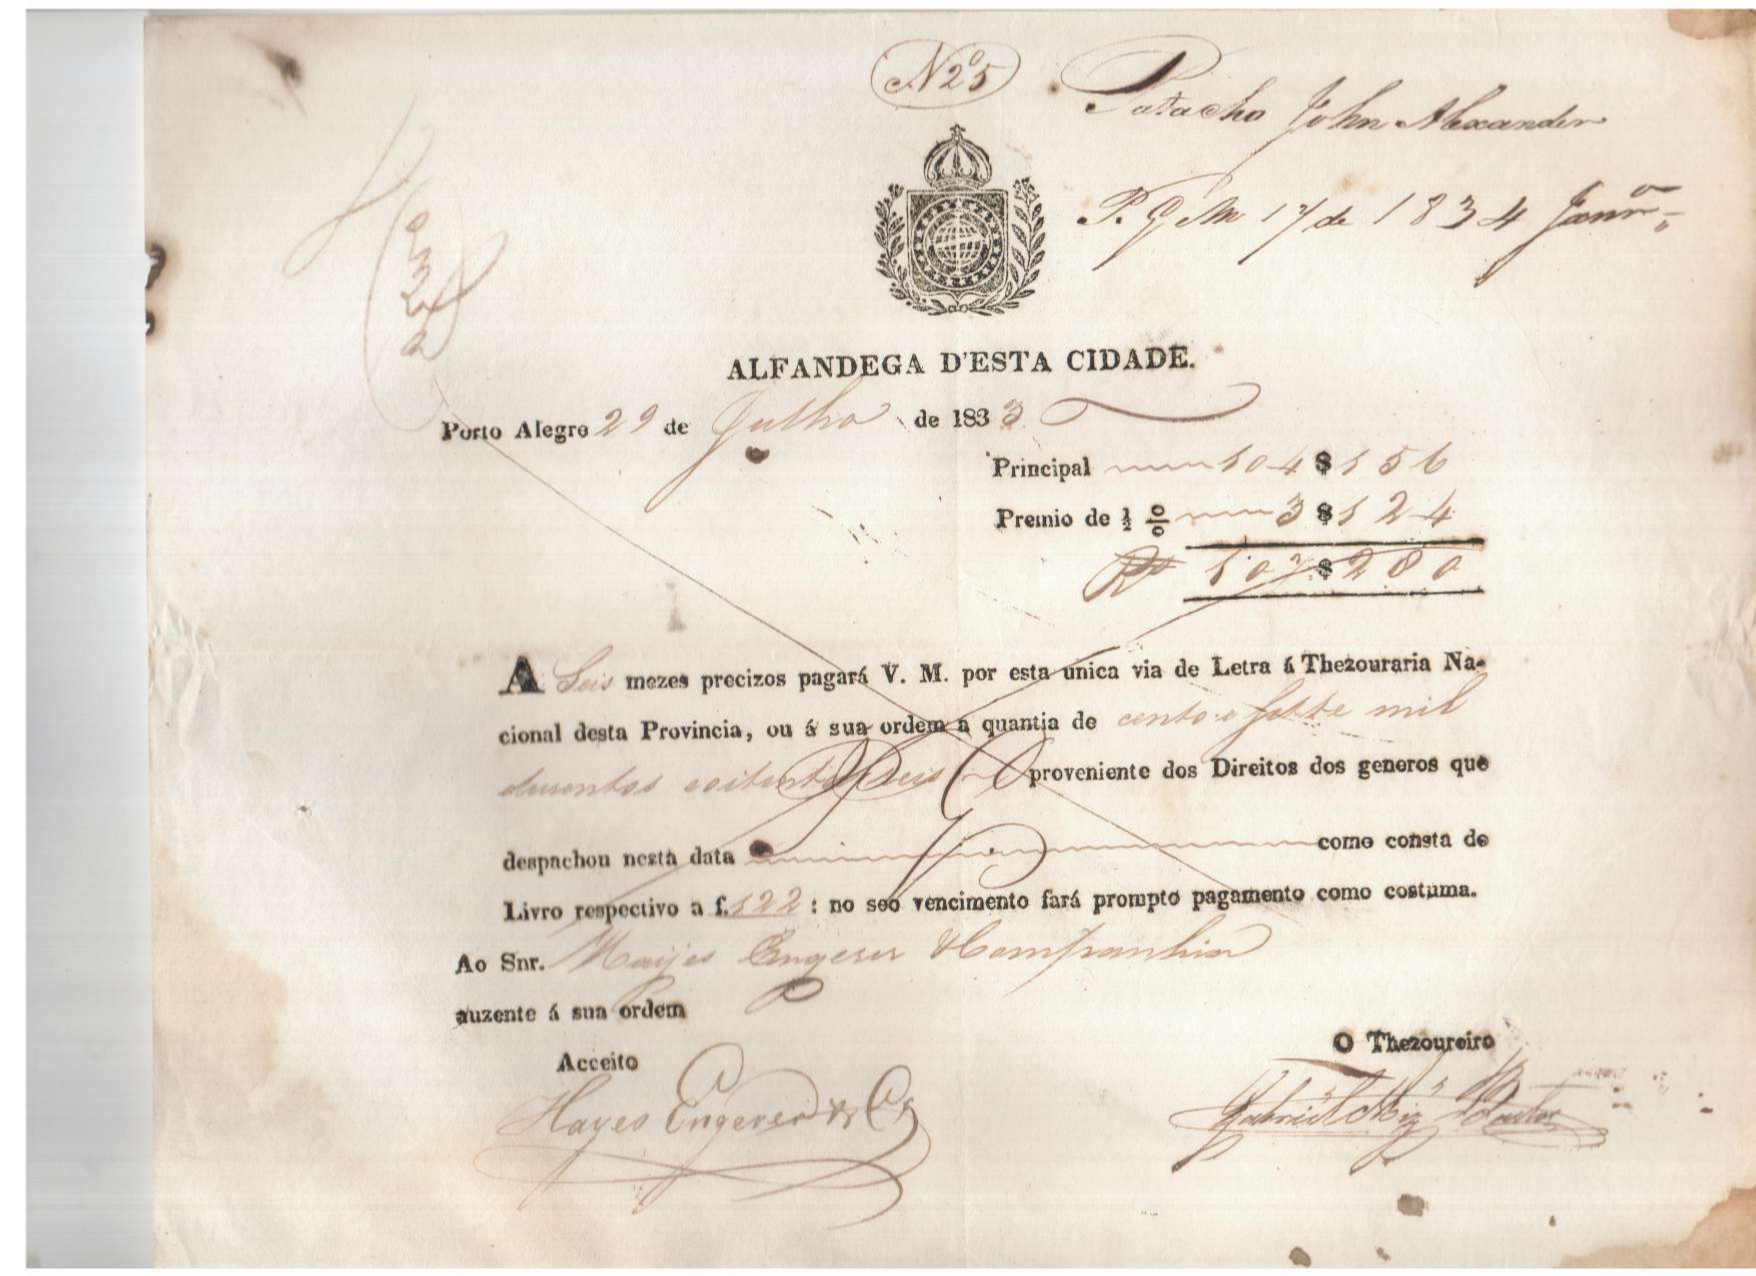 Nº 25
Patacho John Alexander
P. G. em 17 de 1834 Janrº
ALFANDEGA D'ESTA CIDADE.
Porto Alegre 29 de Julho de 1833
Principal 104$156
Premio de ½ % 3$124
Rs 107$280
A Seis mezes precizos pagará V. M. por esta unica via de Letra á Thezouraria Na-
cional desta Provincia, ou á sua ordem a quantia de cento e sette mil
duzentos oitenta reis proveniente dos Direitos dos generos que
despachou nesta data como consta do
Livro respectivo a f. 122 : no seo vencimento fará prompto pagamento como costuma.
Ao Snr. Hayes Engerer & Companhia
auzente á sua ordem
Acceito
O Thezoureiro
Hayes Engerer & Cª
Gabriel